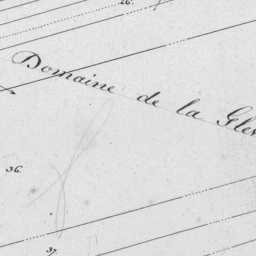 26.
Domaine de la
36.
37.